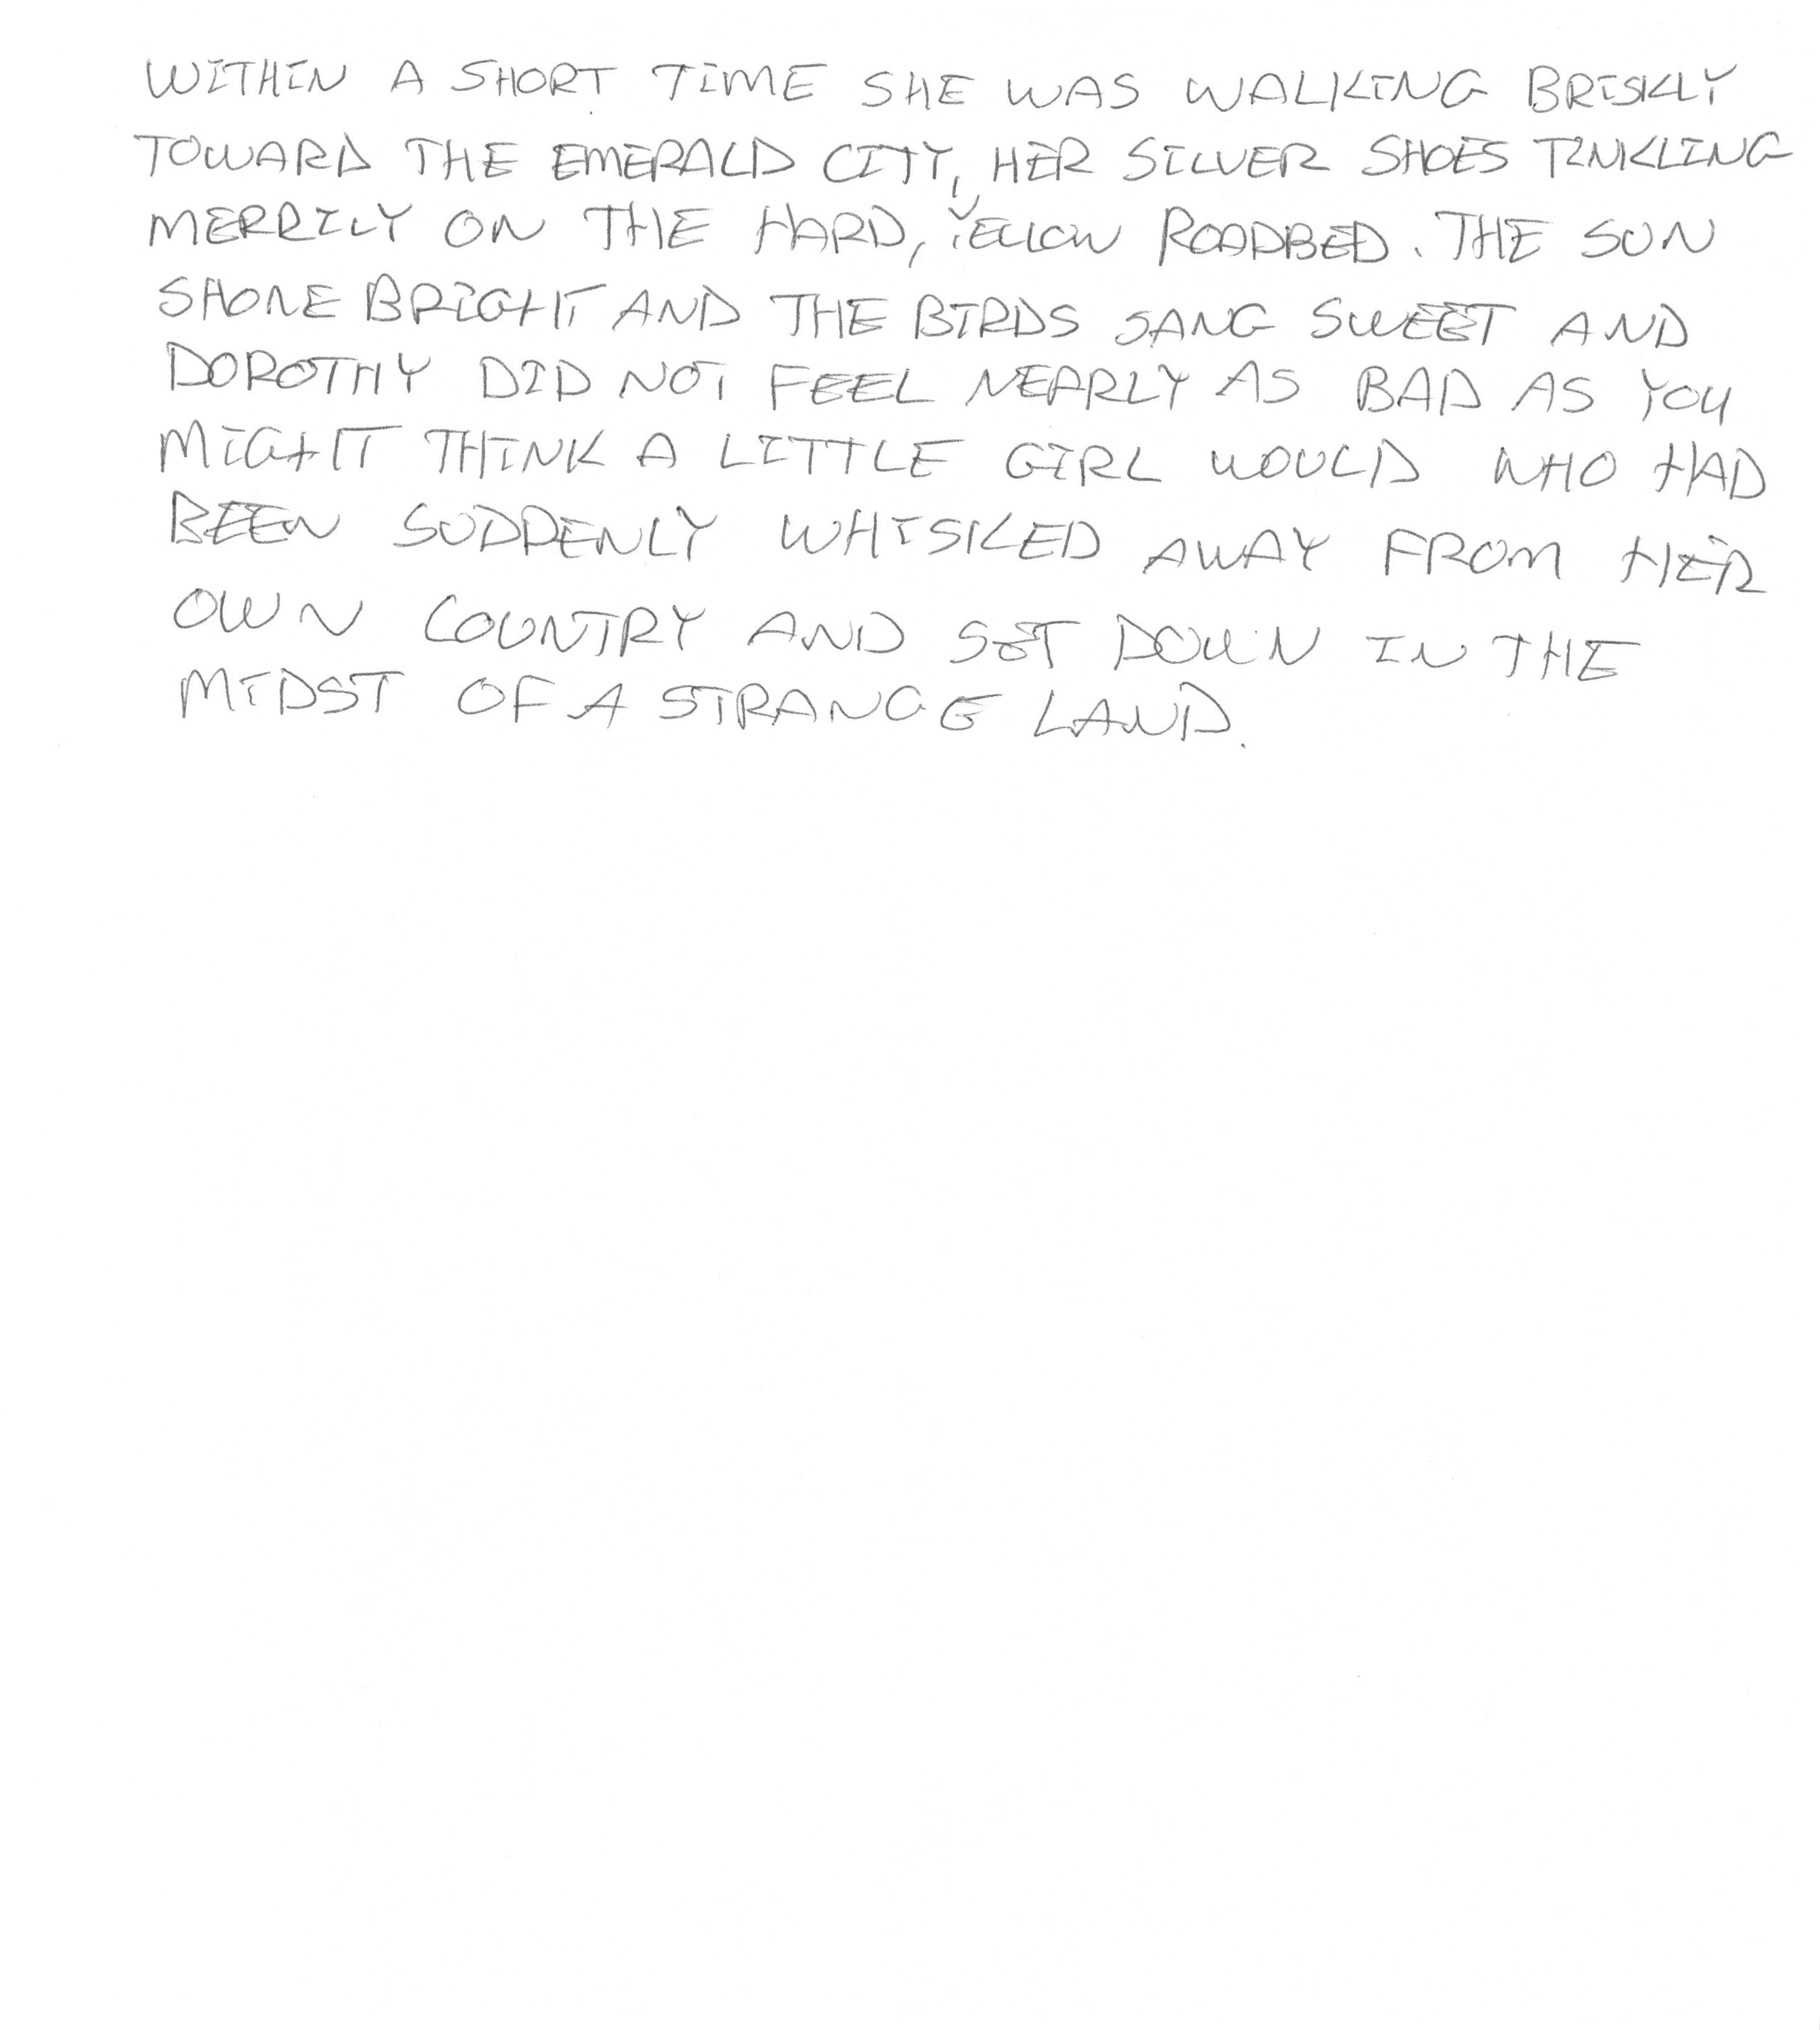 WITHIN A SHORT TIME SHE WAS WALKING BRISKLY
TOWARD THE EMERALD CITY, HER SILVER SHOES TINKLING
MERRILY ON THE HARD, YELLOW ROADBED. THE SUN
SHONE BRIGHT AND THE BIRDS SANG SWEET AND
DOROTHY DID NOT FEEL NEARLY AS BAD AS YOU
MIGHT THINK A LITTLE GIRL WOULD WHO HAD
BEEN SUDDENLY WHISKED AWAY FROM HER
OWN COUNTRY AND SET DOWN IN THE
MIDST OF A STRANGE LAND.